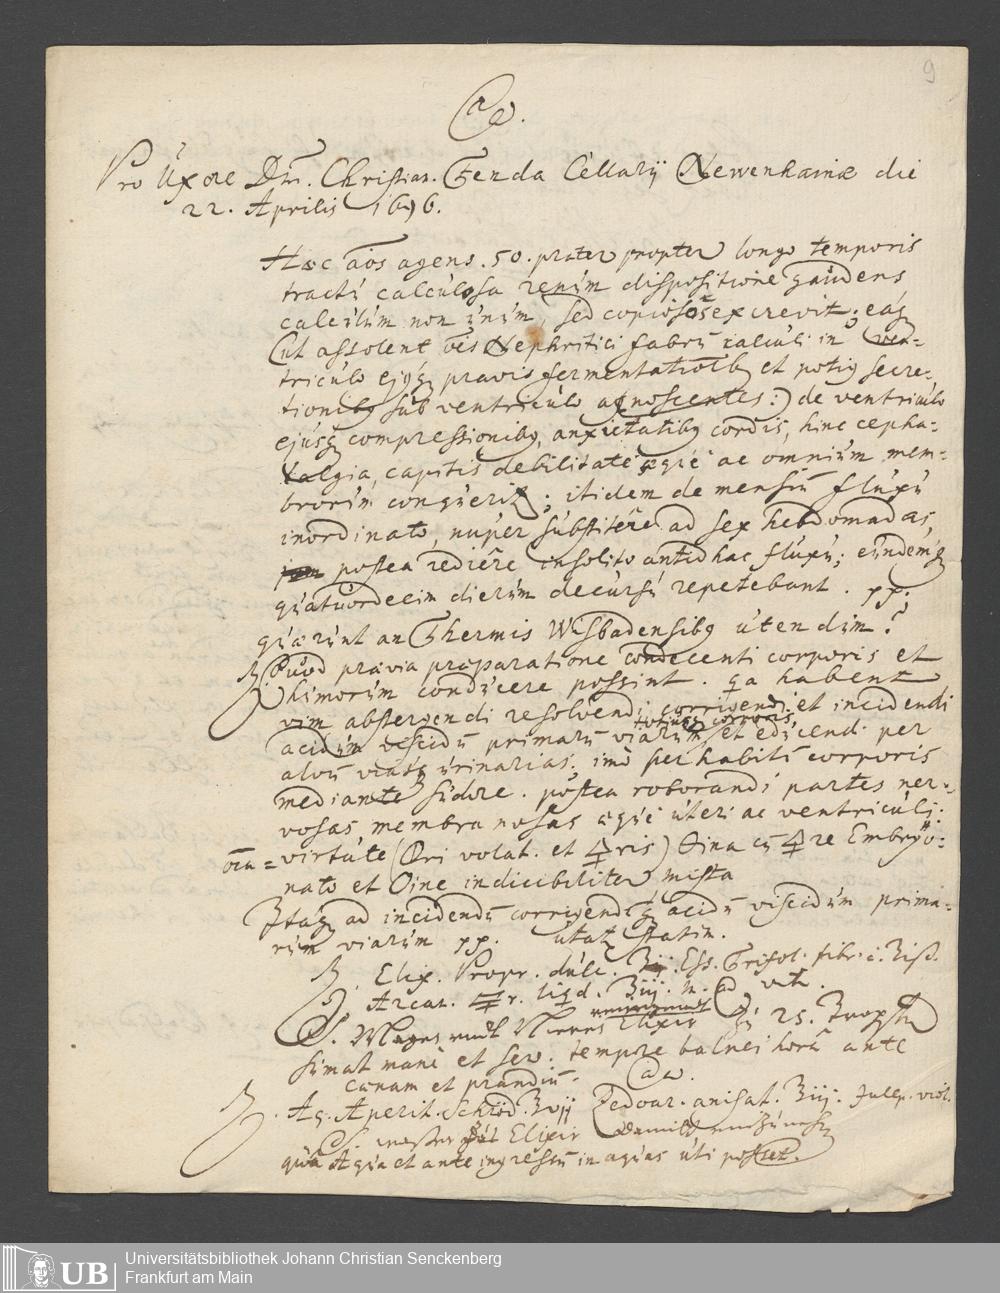 9
Pro Uxore Dni. Christian. Genda Cellarij Newenhainæ die
22. Aprilis 1696.
Hæc aos agens. 50. præter propter longo temporis
tractu calculosa renum dispositione gaudens
calculum non unum, sed copiosos excrevit; eaq
(ut assolent oes Nephritici fabri calculi in ven-
triculo ejusq pravis fermentationib et potiq secre-
tionibq sub ventriculo agnoscentes:) de ventriculo
ejusq compressionibq, anxietatibq cordis, hinc cepha-
lalgia, capitis debilitate ac omnium mem-
brorum conqueritr; itidem de mensiu fluxu
inordinato, nuper substitere ad sex hebdomadas,
postea rediere insolito antidhac fluxu; eundemq
quatuordecim dierum decursu repetebant. pp.
quærunt an Thermis Wisbadensibq utendum?
℞. Quod prævia præparatione condecenti corporis et
humorum conducere possint. qa habent
vim abstergendi resolvendi corrigendi et incidendi
totius corporis
acidum viscidu primaru viarum et educendi per
alvu viasq urinarias; imo per habitu corporis
mediante sudore. postea roborandi partes ner-
vosas, membra uteri ac ventriculi:
virtute (volat. et ris) re Embryo-
nato et indicibiliter mista
Itaq ad incidendu corrigenduq acidu viscidum prima-
rum viarum pp. utatr statim.
℞. Elix. Propr. dulc. Ess. Trifol. fibr. c.
Arcan. r. liqd. ℥iij. m. ad vitr.
S. Magen undt Elixir 25. Tropffen
sumat mane et sero. tempore balnei hora ante
cœnam et prandiu.
℞. Aq. Aperit. Schröd. Zedoar. anisat. ℥iij. Julep. viol.
S. Elixir
qua Aqua et ante ingressu in aquas uti posset.
UB
Universitätsbibliothek Johann Christian Senckenberg
Frankfurt am Main